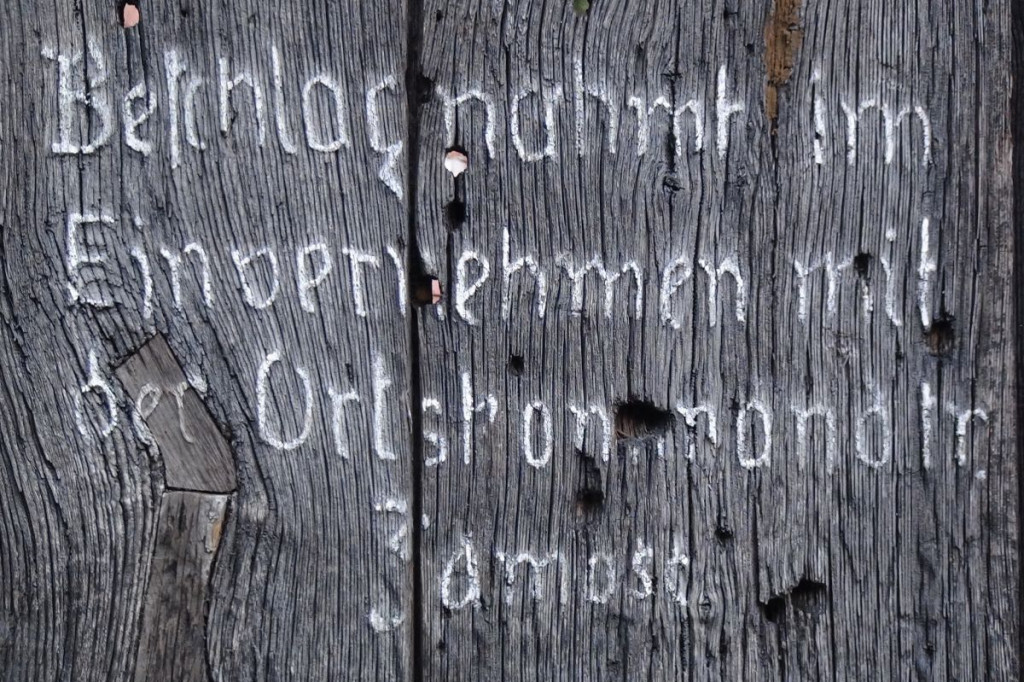 Beschlagnahmt im
Einvernehmen mit
der Ortskommandtr.
Zamosc